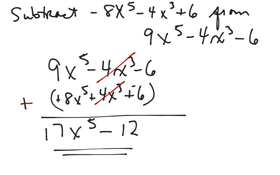 Subtract -8x⁵-4x³+6 from
9x⁵-4x³-6
9x⁵-4x³-6
+ (+8x⁵+4x³+-6)
17x⁵-12